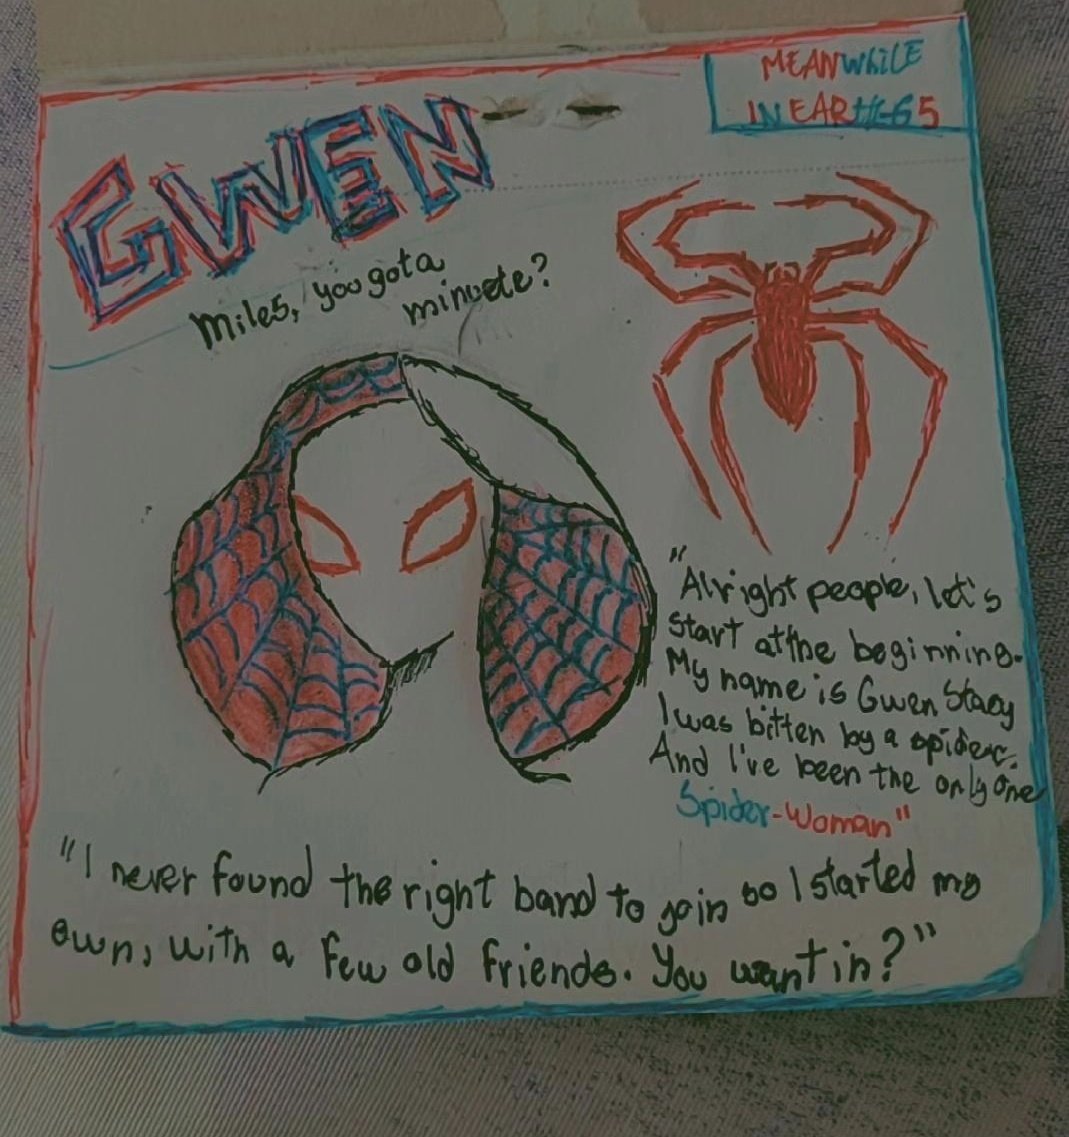 GWEN
MEANWhiLE
IN EARtH-65
Miles, you gota
minuete?
"Alright people, let's
start at the beginning.
My name is Gwen Stacy
I was bitten by a spider.
And I've been the only one
Spider-Woman"
"I never found the right band to join so I started my
own, with a few old friends. You want in?"